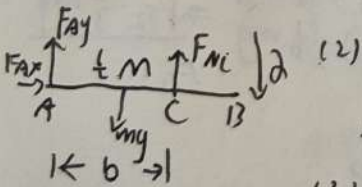 F_Ay
F_Ax  t/2 M  F_Ni  α  (2)
A  C  B
mg
|← b →|